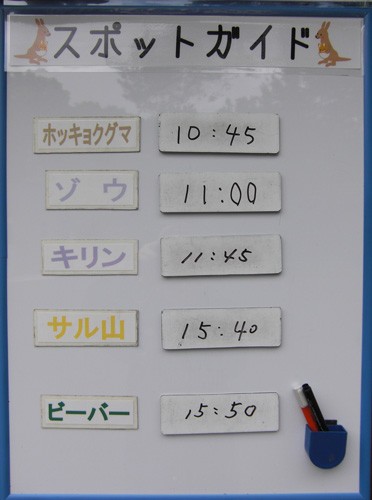 スポットガイド
ホッキョクグマ 10:45
ゾウ 11:00
キリン 11:45
サル山 15:40
ビーバー 15:50